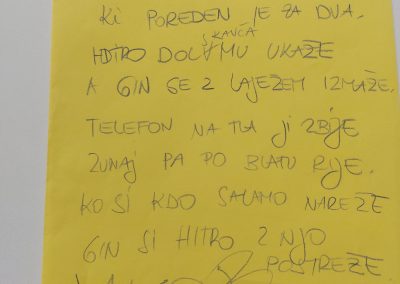 KI POREDEN JE ZA DVA.
SKAVČA
HITRO DOL MU UKAŽE
A GIN SE Z LAJEŽEM IZMAŽE.
TELEFON NA TLA JI ZBIJE
ZUNAJ PA PO BLATU RIJE.
KO SI KDO SALAMO NAREŽE
GIN SI HITRO Z NJO
POSTREŽE